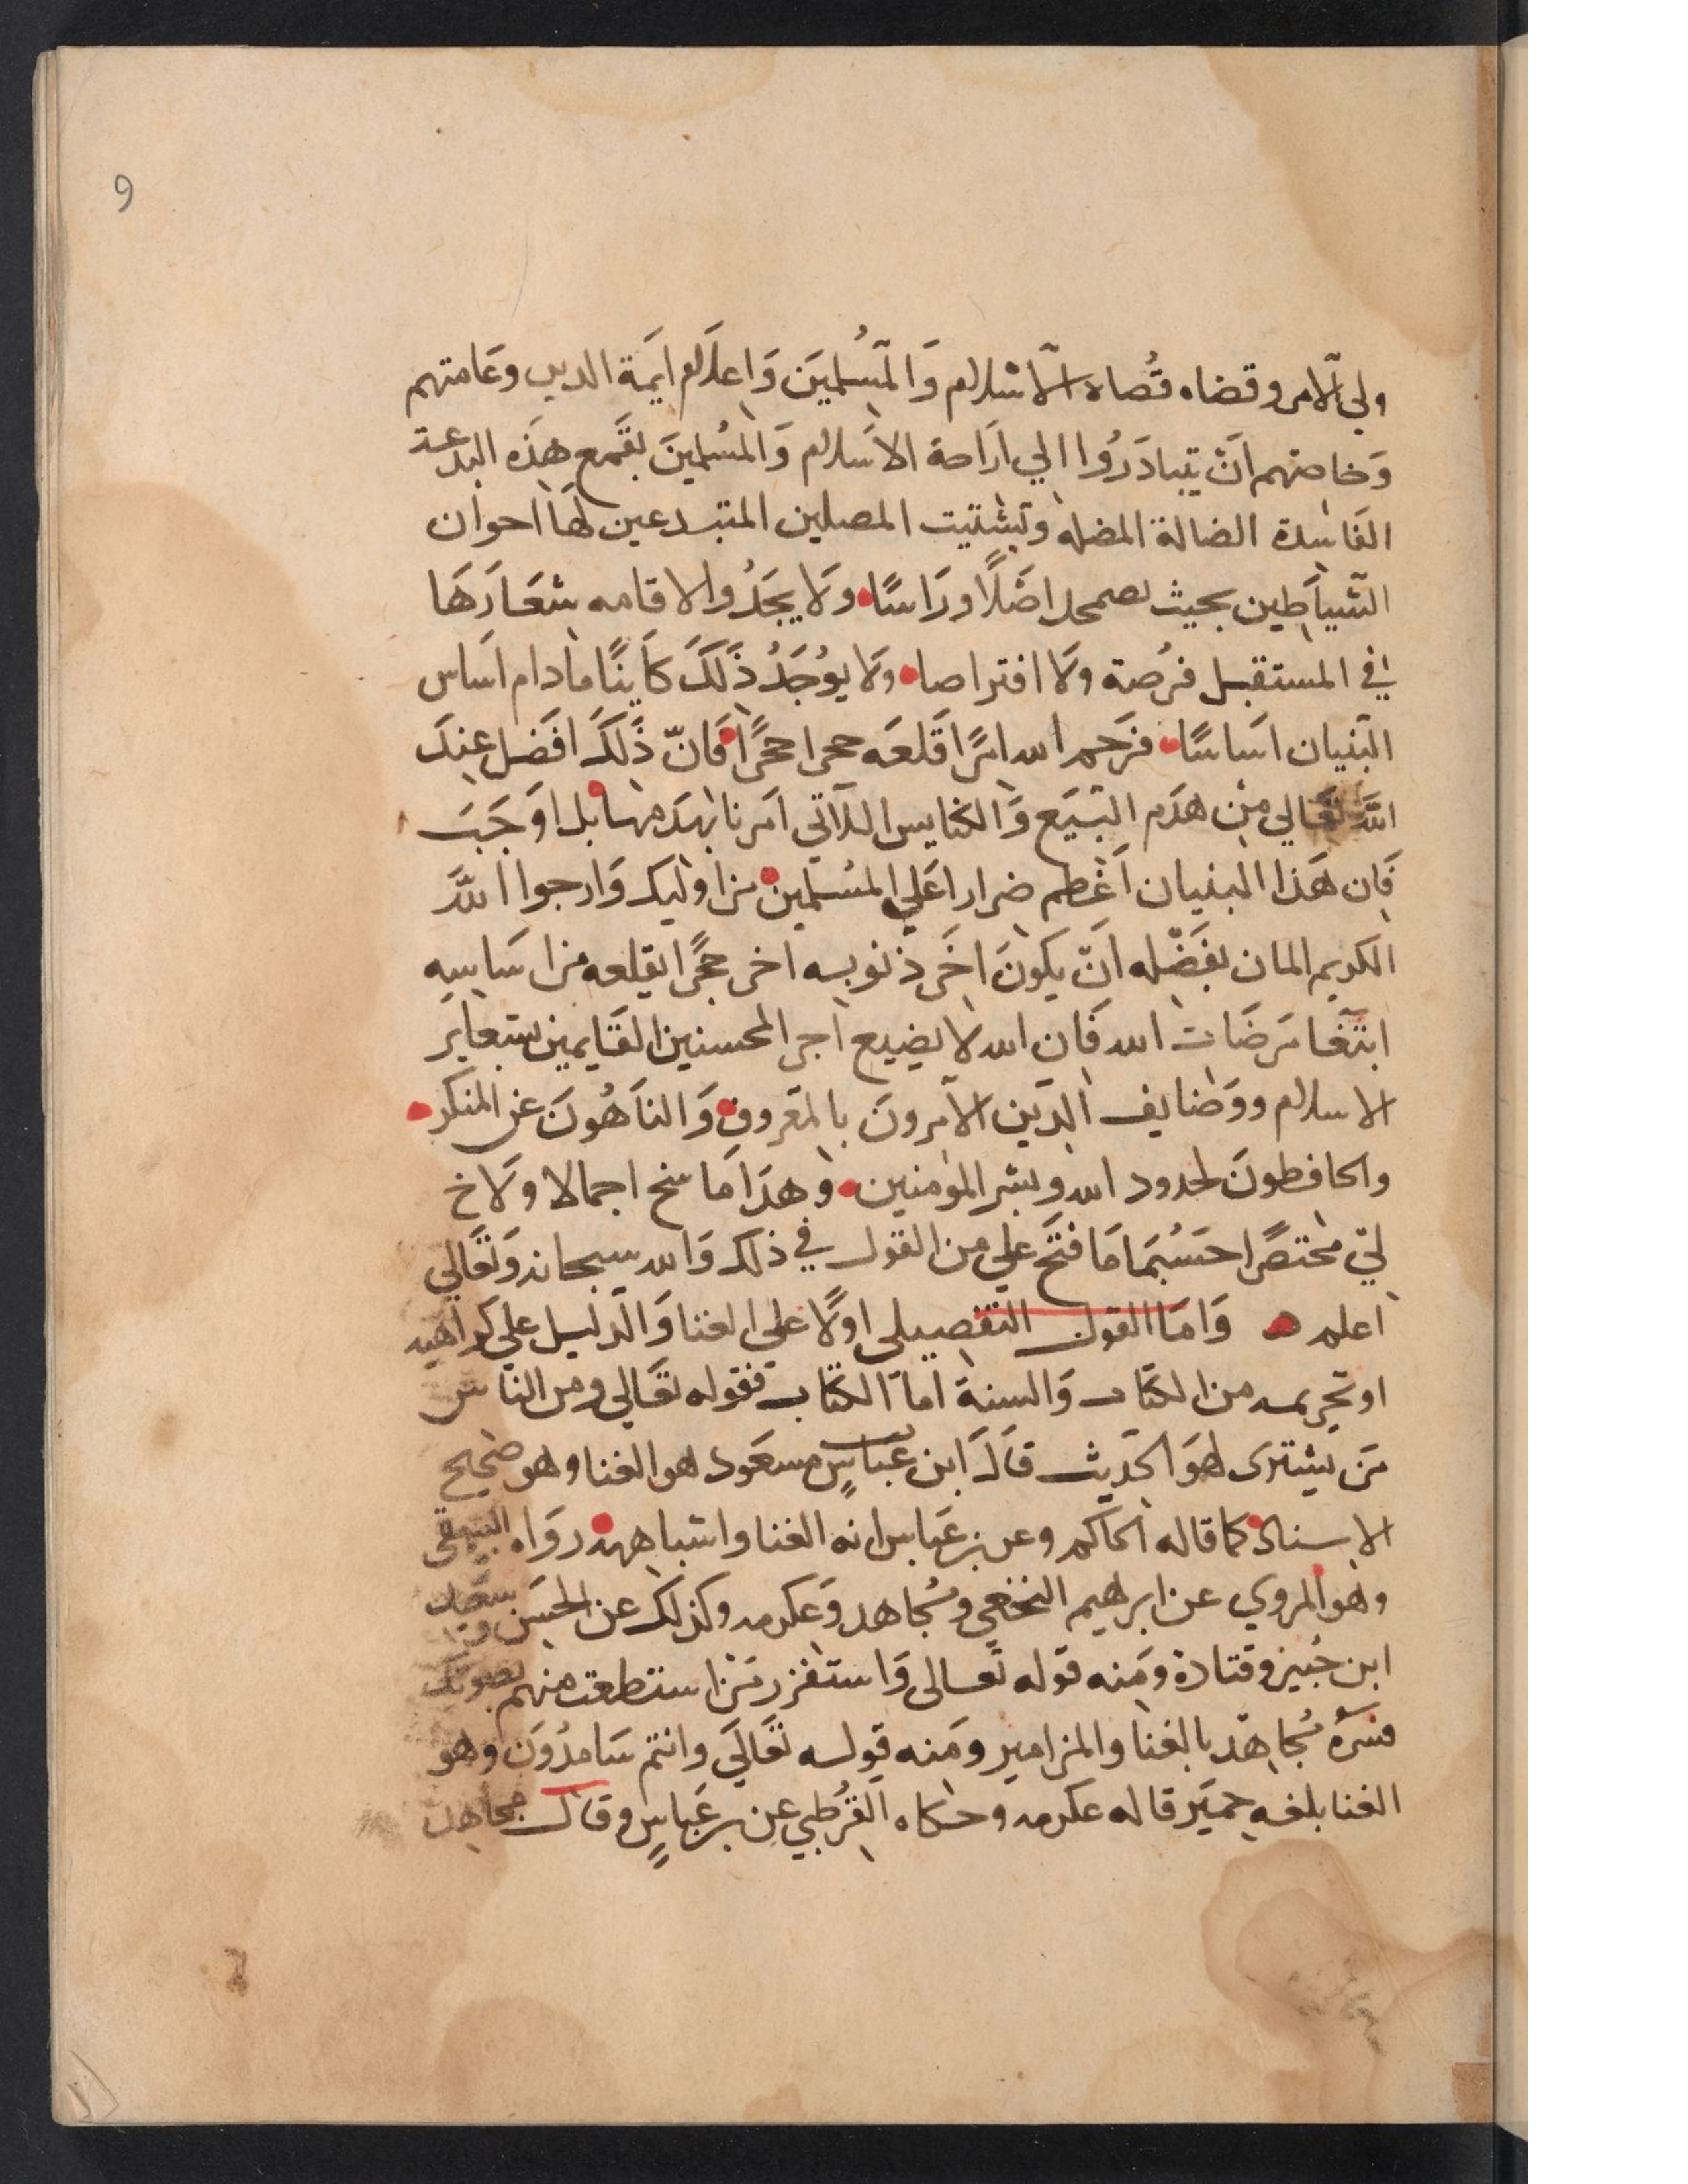 9
ولي الامر وقضاه قُضاه الاسلام وَالمسُلميَن وَاعلَام ايمَة الدين وعَامتهم
وَخاصتهم ان يتبادَرُوا الي ارَاحة الاسَلام وَالمسُلمينَ بقَمع هذَه البدعة
الفَاسِدة الضالة المضله وتشتيت المضلين المتبدعين لهَا احوان
الشيَاطين بحيث يضمحل اصَلًا ورَاسًا ولَا يجَدُوا لاقامه شعَارَهَا
في المستقبل فرُصة ولَا افتراصا ولَا يوُجَدُ ذَلَكَ كَاينًا مادام اسَاس
البَنيان اسَاسًا فرَحم الله امرًا قَلعَه حجرا حجرًا فَانّ ذَلكَ افضَل عِندَ
اللَّه تعَالي مِن هدَم البيَع وَالكنايس اللاتي امَرنا بهَدَمها بل اوَجَبَ
فَان هَذا البنيان اعَظم ضرارا عَلي المسُلمين من اوليك وَارجوا اللَّه
الكريم المان بفَضْله انّ يكونَ اخَر ذنوبه اخر حجرًا يقلعه من اسَاسِه
ابتغَا مرضَات الله فَان الله لا يضيع اجر المحسنين القَايمين بشعاير
الاسلام ووَضايف الدَين الآمرونَ بالمعَروف وَالنَاهُونَ عن المنكر
والحافظونَ لحدود الله وبشر المومنين وهذَا مَا سنح اجمالا ولَاح
لي مختصرًا حسَبُمَا مَا فتَح علي من القول في ذلك وَالله سبحانه وَتعَالي
اعلم وَامَا القول التفصيلي اولًا على الغنا وَالدليل علي كراهيه
او تحريمه من الكتَاب وَالسنة امَا الكتَاب فقوله تعَالي ومن النَاس
مَن يشترى لهوَ الحَديث قَالَ ابن عَباسٍ مسعَود هو الغنا وهو صَحيح
الاسناد كما قاله الحاكم وعن بن عَباس انه الغنا واشباهه روَاه البيهقي
وهو المروي عن ابرهيم النخعَي ومُجاهد وَعكرمه وكذلك عن الحسَن وسَعيد
ابن جُبيرَ وقتادة ومَنه قوله تعَالى وَاستفزز مَن استطعت منهم بصوتك
فسَرهُ مُجاهَد بالغنا والمزامير ومَنه قوله تعَالَي وانتم سَامدُونَ وهو
الغنا بلغه حميَر قاله عكرمه وحكاه القَرُطبي عن بن عَباسٍ وقال مجاهد